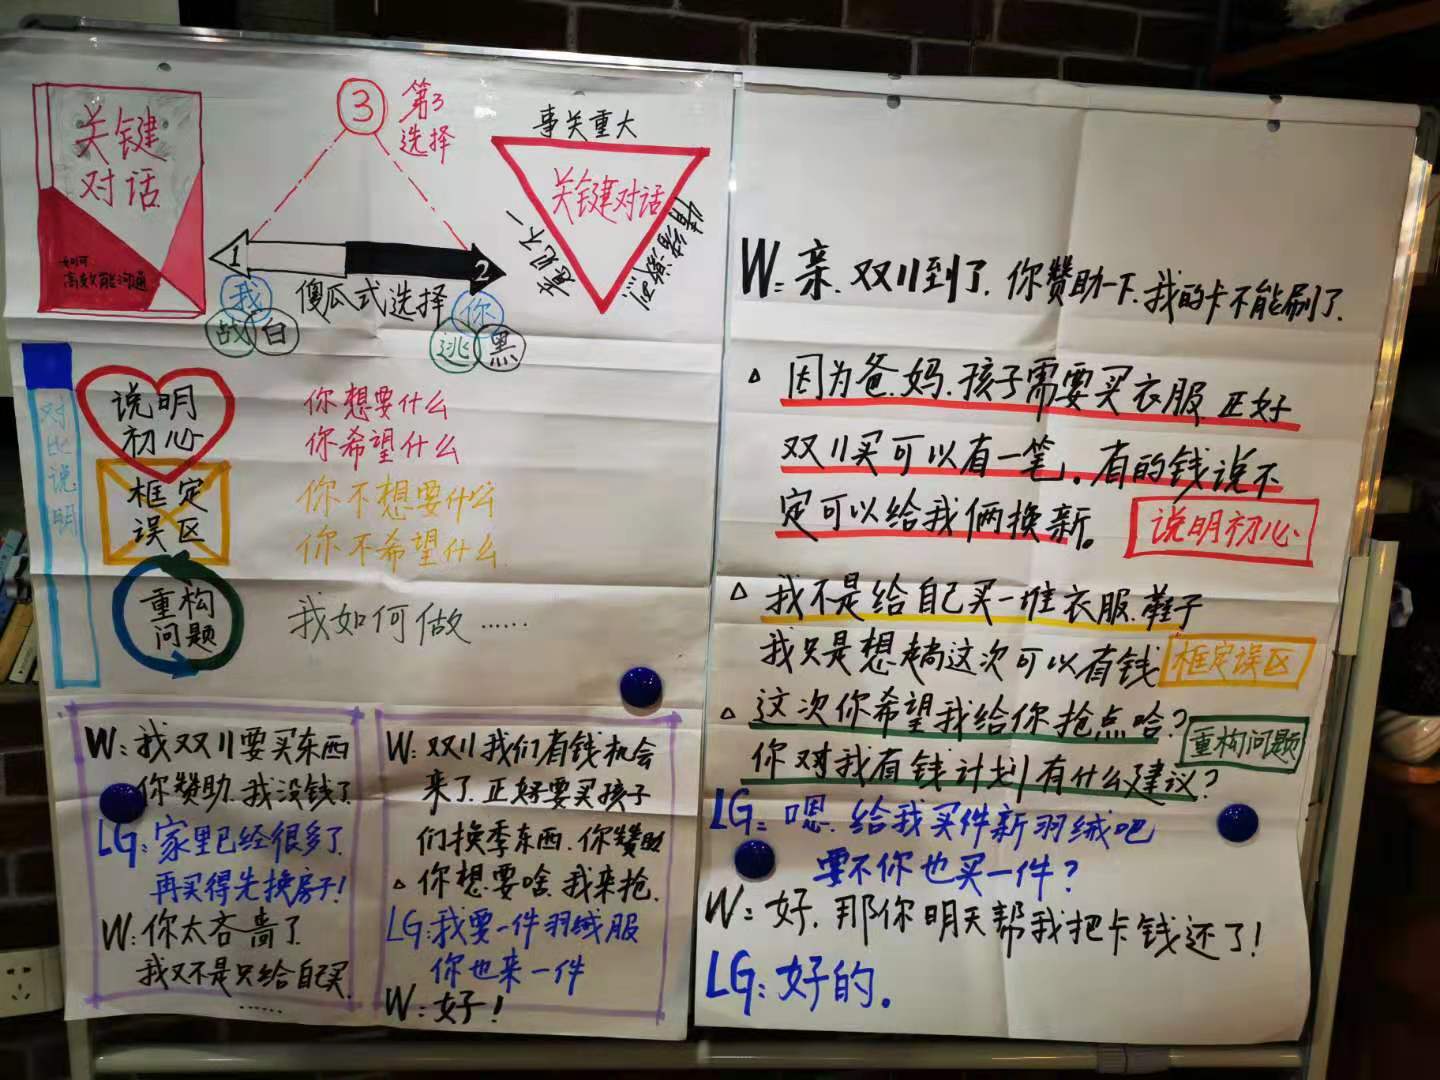 关键
对话
如何
高效能沟通
3
第3
选择
1
2
我
战
白
傻瓜式选择
你
逃
黑
事关重大
关键对话
意见不一
情绪激烈
对比说明
说明
初心
你想要什么
你希望什么
框定
误区
你不想要什么
你不希望什么
重构
问题
我如何做……
W:我双11要买东西
你赞助.我没钱了
LG:家里已经很多了.
再买得先换房子!
W:你太吝啬了
我又不是只给自己买
……
W:双11我们有钱机会
来了.正好要买孩子
们换季东西.你赞助
△你想要啥.我来抢.
LG:我要一件羽绒服
你也来一件
W:好!
W:亲.双11到了.你赞助一下.我的卡不能刷了.
△因为爸.妈.孩子需要买衣服.正好
双11买可以有一笔。有的钱说不
定可以给我俩换新。
说明初心
△我不是给自己买一堆衣服.鞋子
我只是想趟这次可以有钱
框定误区
△这次你希望我给你抢点啥?
重构问题
你对我有钱计划有什么建议?
LG:嗯.给我买件新羽绒吧
要不你也买一件?
W:好.那你明天帮我把卡钱还了!
LG:好的。